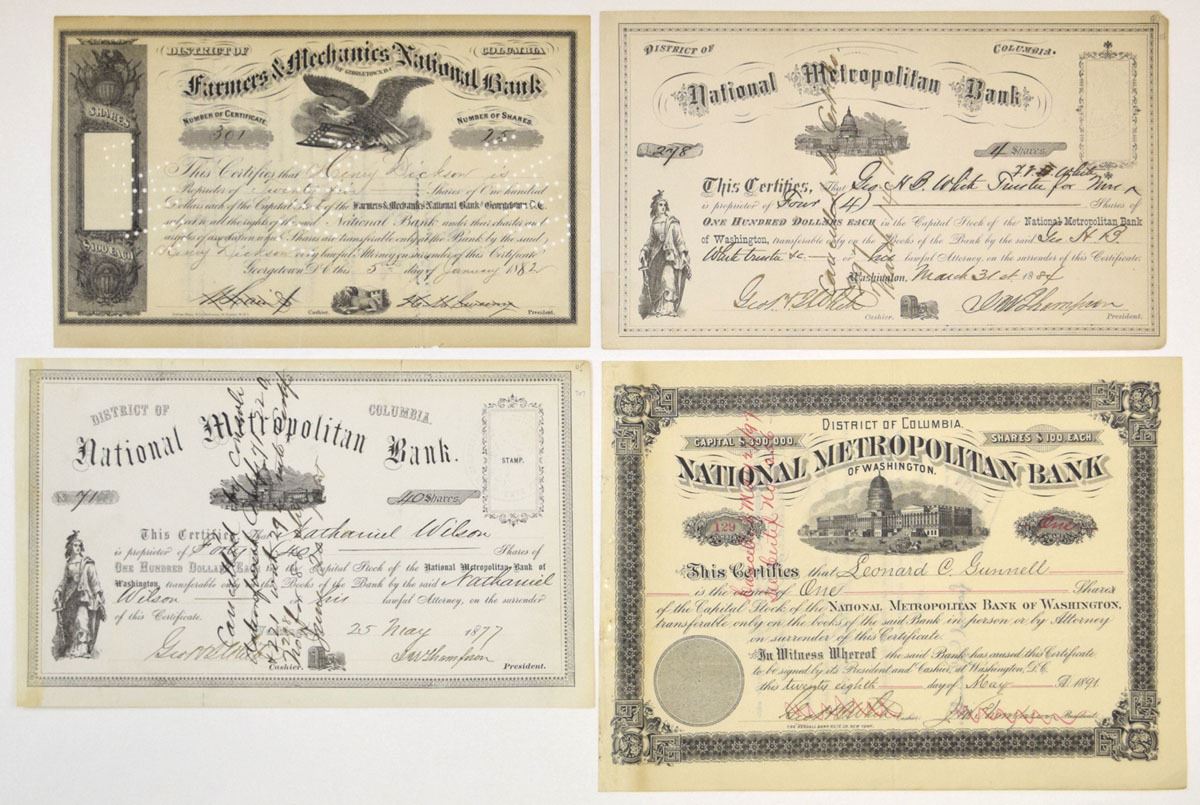 DISTRICT OF COLUMBIA
Farmers & Mechanics National Bank
OF GEORGETOWN D.C.
NUMBER OF CERTIFICATE. NUMBER OF SHARES.
301 25
SHARES
$100 EACH
This Certifies that Henry Dickson is
Proprietor of Twenty five Shares of One hundred
Dollars each of the Capital Stock of the Farmers & Mechanics National Bank Georgetown D.C.
with all the rights of the said National Bank under their charter and
articles of association which Shares are transferable only at the Bank by the said
Henry Dickson or lawful Attorney on surrender of this Certificate
Georgetown D.C. this 5th day of January 1882
Cashier. President.
DISTRICT OF COLUMBIA.
National Metropolitan Bank
278 4 Shares
This Certifies, That Geo. H. B. White Trustee for
is proprietor of Four (4) Shares of
ONE HUNDRED DOLLARS EACH in the Capital Stock of the National Metropolitan Bank
of Washington, transferable only on the Books of the Bank by the said Geo. H. B.
White trustee &c. or his lawful Attorney, on the surrender of this Certificate.
Washington, March 31st 1884
Geo. H. B. White Cashier. J W Thompson President.
DISTRICT OF COLUMBIA.
National Metropolitan Bank.
STAMP.
71 40 Shares
This Certifies That Nathaniel Wilson
is proprietor of Forty 40 Shares of
ONE HUNDRED DOLLARS EACH in the Capital Stock of the National Metropolitan Bank of
Washington, transferable only on the Books of the Bank by the said Nathaniel
Wilson or his lawful Attorney, on the surrender
of this Certificate.
25 May 1877
Geo. H. B. White Cashier. J W Thompson President.
DISTRICT OF COLUMBIA.
CAPITAL $300,000. SHARES $100 EACH.
NATIONAL METROPOLITAN BANK
OF WASHINGTON.
129 One
This Certifies that Leonard C. Gunnell
is the owner of One Shares
of the Capital Stock of the NATIONAL METROPOLITAN BANK OF WASHINGTON,
transferable only on the books of the said Bank in person or by Attorney
on surrender of this Certificate.
In Witness Whereof the said Bank has caused this Certificate
to be signed by its President and Cashier, at Washington, D.C.
this twenty eighth day of May A.D. 1891
Cashier. President.
THE KENDALL BANK NOTE CO. NEW YORK.